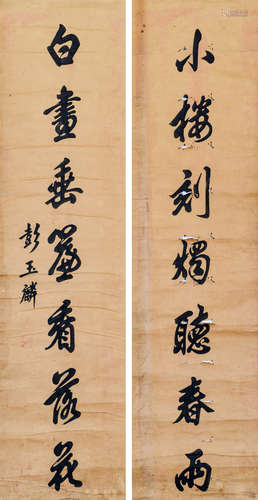 小楼刻燭聽春雨
白晝垂簾看落花
彭玉麟